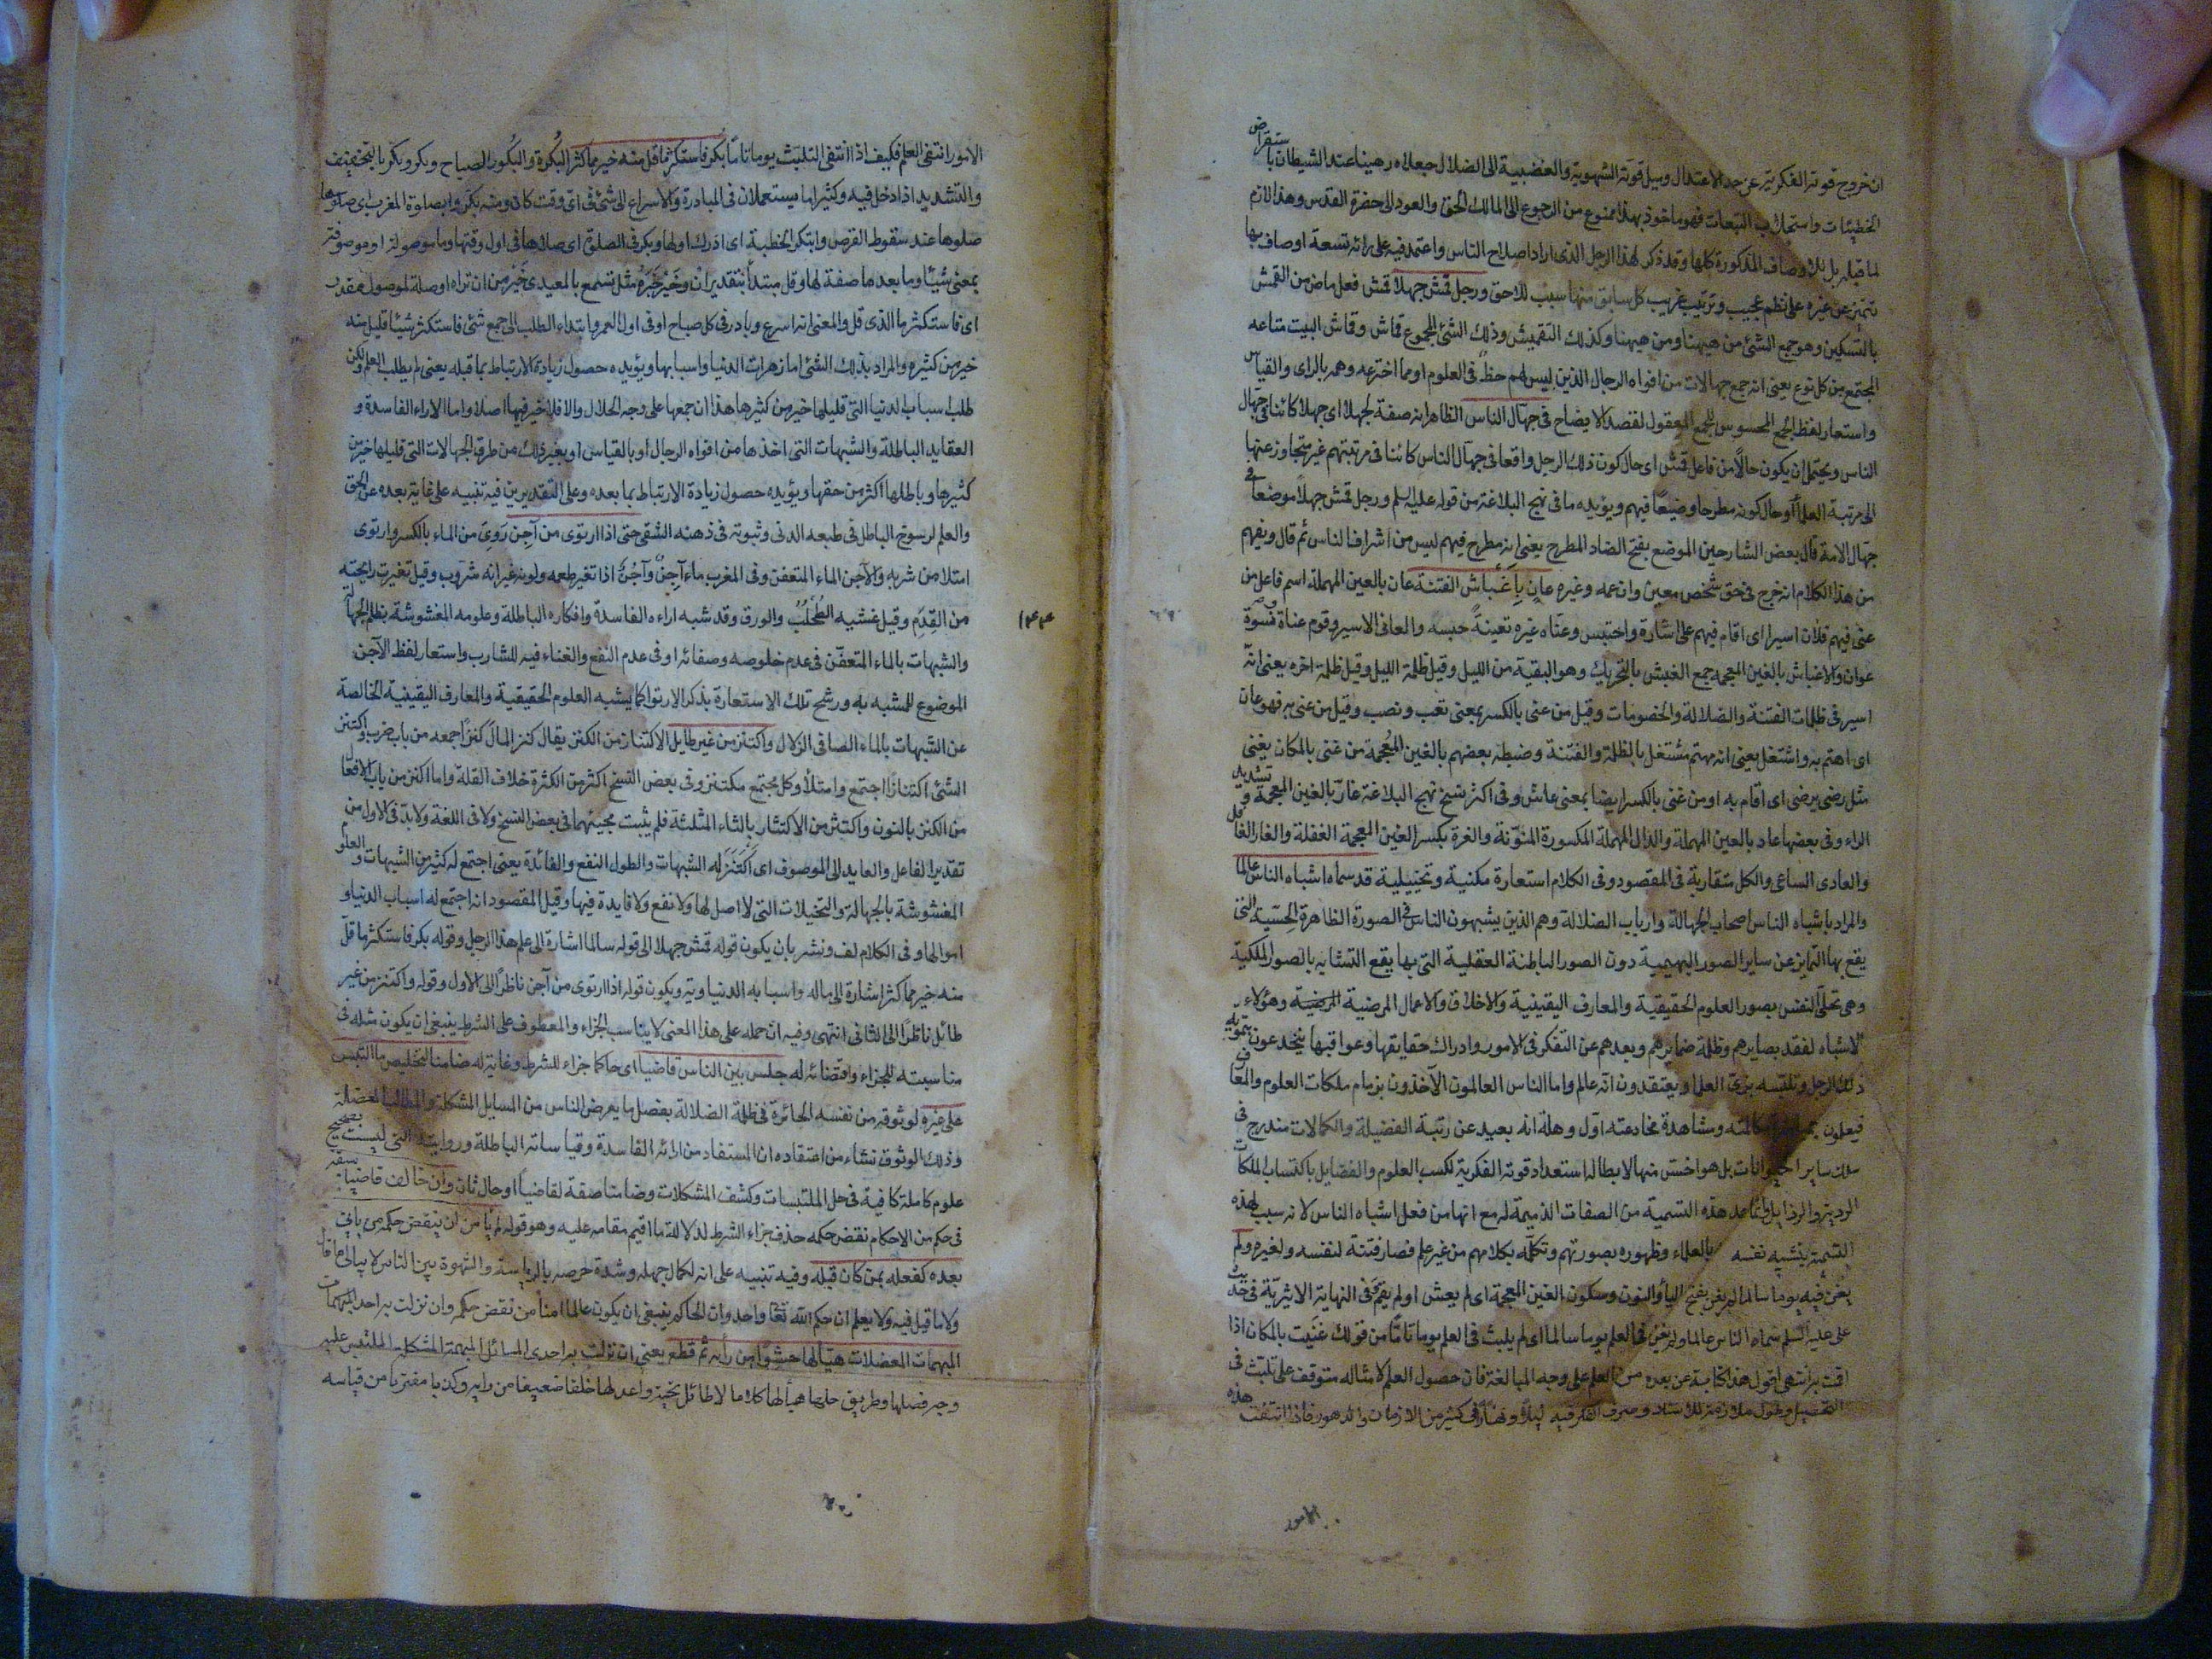 ان خروج قوته الفكرية عن حد الاعتدال وميل قوته الشهوية والغضبية الى الضلال جعلاه رهينا عند الشيطان باستقراض
الخطيئات واستجلاب التبعات فهو ماخوذ بهذا ممنوع من الرجوع الى المالك الحق والعود الى حضرة القدس وهذا لازم
لما قبله بل للاوصاف المذكورة كلها وقد ذكر لهذا الرجل الذى اراد اصلاح الناس واعتمد فيه على رائه تسعة اوصاف بها
تتميز عن غيره على نظم عجيب وترتيب غريب كل سابق منها سبب للاحق ورجل قمش جهلا قمش فعل ماض من القمش
بالتسكين وهو جمع الشئ من هيهنا ومن هيهنا وكذلك التقميش وذلك الشئ المجموع قماش وقماش البيت متاعه
المجتمع من كل نوع يعنى انه جمع جهالات من افواه الرجال الذين ليس لهم حظ فى العلوم او مما اخترعه وهمه بالراى والقياس
واستعار لفظ الجمع المحسوس للجمع المعقول لقصد الايضاح فى جهال الناس الظاهر انه صفة لجهلا اى جهلا كائنا فى جهال
الناس ويحتمل ان يكون حالا من فاعل قمش اى حال كون ذلك الرجل واقعا فى جهال الناس كائنا فى مرتبتهم غير متجاوز عنها
الى مرتبة العلماء او حال كونه مطرحا وضيعا فيهم ويؤيده ما فى نهج البلاغة من قوله عليه السلم ورجل قمش جهلا موضعا فى
جهال الامة قال بعض الشارحين الموضع بفتح الضاد المطرح يعنى انه مطرح فيهم ليس من اشراف الناس ثم قال ويفهم
من هذا الكلام انه خرج فى حق شخص معين وان عمه وغيره عان باغباش الفتنة عان بالعين المهملة اسم فاعل من
عنى فيهم فلان اسيرا اى اقام فيهم على اشارة واحتبس وعناه غيره تعنية حبسه والعانى الاسير وقوم عناة ونسوة
عوان والاغباش بالغين المعجمة جمع الغبش بالتحريك وهو البقية من الليل وقيل ظلمة الليل وقيل ظلمة اخره يعنى انه
اسير فى ظلمات الفتنة والضلالة والخصومات وقيل من عنى بالكسر بمعنى تعب ونصب وقيل من عنى به فهو عان
اى اهتم به واشتغل يعنى انه مهتم مشتغل بالظلمة والفتنة وضبطه بعضهم بالغين المعجمة من غنى بالمكان يغنى
مثل رضى يرضى اى اقام به او من غنى بالكسر ايضا بمعنى عاش وفى اكثر نسخ نهج البلاغة غار بالغين المعجمة وتشديد
الراء وفى بعضها عاد بالعين المهملة والدال المهملة المكسورة المنونة والغرة بكسر الغين المعجمة الغفلة والغار الغافل
والعادى الساعى والكل متقاربة فى المقصود وفى الكلام استعارة مكنية وتخييلية قد سماه اشباه الناس عالما
والمراد باشباه الناس اصحاب الجهالة وارباب الضلالة وهم الذين يشبهون الناس فى الصورة الظاهرة الحسية التى
يقع بها التمايز عن ساير الصور البهيمية دون الصور الباطنة العقلية التى بها يقع التشابه بالصور الملكية
وهى تحلى النفس بصور العلوم الحقيقية والمعارف اليقينية والاخلاق والاعمال المرضية وهؤلاء
الاشباه لفقد بصايرهم وظلمة ضمايرهم وبعدهم عن التفكر فى الامور وادراك حقايقها وعواقبها ينخدعون بتمويه
ذلك الرجل وتلبسه بزى العلماء ويعتقدون انه عالم واما الناس العالمون الآخذون بزمام ملكات العلوم والمعارف
فيعلمون ومشاهدة مخادعته اول وهلة انه بعيد عن رتبة الفضيلة والكمالات مندرج فى
سلك ساير الحيوانات بل هو اخس منها لابطاله استعداد قوته الفكرية لكسب العلوم والفضايل باكتساب الملكات
الردية والرذايل وانما عد هذه التسمية من الصفات الذميمة له مع انها من فعل اشباه الناس لانه سبب لهذه
التسمية بتشبيه نفسه بالعلماء وظهوره بصورتهم وتكلمه بكلامهم من غير علم فصار فتنة لنفسه ولغيره ولم
يغن فيه يوما سالما لم يغن بفتح الياء والنون وسكون الغين المعجمة اى لم يعش او لم يقم فى النهاية الاثيرية فى حديث
على عليه السلم سماه الناس عالما ولم يغن فى العلم يوما سالما اى لم يلبث فى العلم يوما تاما من قولك غنيت بالمكان اذا
اقمت به انتهى اقول هذا كناية عن بعده من العلم على وجه المبالغة فان حصول العلم لامثاله متوقف على تلبث فى
التحصيل وطول ملازمته للاستاد وصرف الفكر فيه ليلا ونهارا فى كثير من الازمان والدهور فاذا انتفت هذه
الامور
الامور انتفى العلم فكيف اذا انتفى التلبث يوما تاما بكر فاستكثر ما قل منه خير مما كثر البكرة والبكور الصباح وبكر وبكر بالتخفيف
والتشديد اذا دخل فيه وكثيرا ما يستعملان فى المبادرة والاسراع الى شئ فى اى وقت كان ومنه بكروا بصلوة المغرب اى صلوها
صلوها عند سقوط القرص وابتكر الخطبة اى ادرك اولها وبكر فى الصلوة اى صلاها فى اول وقتها وما موصولة او موصوفة
بمعنى شيئا وما بعدها صفة لها وقل مبتدأ بتقدير ان وخير خبره مثل تسمع بالمعيدى خير من ان تراه او صلة لموصول مقدر
اى فاستكثر ما الذى قل والمعنى انه اسرع وبادر فى كل صباح او فى اول العمر وابتداء الطلب الى جمع شئ فاستكثر شيئا قليل منه
خير من كثيره والمراد بذلك الشئ اما زهرات الدنيا واسبابها ويؤيده حصول زيادة الارتباط بما قبله يعنى لم يطلب العلم ولكن
طلب اسباب الدنيا التى قليلها خير من كثيرها هذا ان جمعها على وجه الحلال والا فلا خير فيها اصلا واما الاراء الفاسدة و
العقايد الباطلة والشبهات التى اخذها من افواه الرجال او بالقياس او بغير ذلك من طرق الجهالات التى قليلها خير من
كثيرها وباطلها اكثر من حقها ويؤيده حصول زيادة الارتباط بما بعده وعلى التقديرين فيه تنبيه على غاية بعده عن الحق
والعلم لرسوخ الباطل فى طبعه الدنى وثبوته فى ذهنه الشقى حتى اذا ارتوى من آجن روى من الماء بالكسر وارتوى
امتلا من شربه والآجن الماء المتعفن وفى المغرب ماء آجن وآجن اذا تغير طعمه ولونه غير انه شروب وقيل تغيرت رايحته
من القدم وقيل غشيه الطحلب والورق وقد شبه اراءه الفاسدة وافكاره الباطلة وعلومه المغشوشة بظلم الجهالة
والشبهات بالماء المتعفن فى عدم خلوصه وصفائه او فى عدم النفع والغناء فيه للشارب واستعار لفظ الآجن
الموضوع للمشبه به ورشح تلك الاستعارة بذكر الارتواء كما يشبه العلوم الحقيقية والمعارف اليقينية الخالصة
عن الشبهات بالماء الصافى الزلال واكتنز من غير طايل الاكتناز من الكنز يقال كنز المال كنزا جمعه من باب ضرب واكتنز
الشئ اكتنازا اجتمع وامتلأ وكل مجتمع مكتنز وفى بعض النسخ اكثر من الكثرة خلاف القلة واما اكنز من باب الافعال
من الكنز بالنون واكتثر من الاكتثار بالثاء المثلثة فلم يثبت مجيئهما فى بعض النسخ ولا فى اللغة ولا بد فى الاول من
تقدير الفاعل والعايد الى الموصوف اى اكتنز له الشبهات والطول النفع والفائدة يعنى اجتمع له كثير من الشبهات والعلوم
المغشوشة بالجهالة والتخيلات التى لا اصل لها ولا نفع ولا فايدة فيها وقيل المقصود انه اجتمع له اسباب الدنيا و
اموالها وفى الكلام لف ونشر بان يكون قوله قمش جهلا الى قوله سالما اشارة الى علم هذا الرجل وقوله بكر فاستكثر ما قل
منه خير مما كثر اشارة الى ماله واسبابه الدنياوية ويكون قوله اذا ارتوى من آجن ناظرا الى الاول وقوله واكتنز من غير
طائل ناظرا الى الثانى انتهى وفيه ان حمله على هذا المعنى لا يناسب الجزاء والمعطوف على الشرط ينبغى ان يكون مثله فى
مناسبته للجزاء واقتضائه له جلس بين الناس قاضيا اى حاكما جزاء للشرط وغاية له ضامنا لتخليص ما التبس
على غيره لوثوقه من نفسه الجائرة فى ظلمة الضلالة بفصل ما يعرض الناس من المسايل المشكلة والمطالب المعضلة
وذلك الوثوق نشاء من اعتقاده ان المستفاد من ارائه الفاسدة وقياساته الباطلة ورواياته التى ليست بصحيح
علوم كاملة كافية فى حل الملتبسات وكشف المشكلات وضامنا صفة لقاضيا او حال ثان وان خالف قاضيا سبقه
فى حكم من الاحكام نقض حكمه حذف جزاء الشرط لدلالة ما اقيم مقامه عليه وهو قوله لم يأمن ان ينقض حكمه من ياتى
بعده كفعله بمن كان قبله وفيه تنبيه على انه لكمال جهله وشدة حرصه بالرياسة والشهوة بين الناس لا يبالى بما قال
ولا ما قيل فيه ولا يعلم ان حكم الله تعا واحد وان الحاكم ينبغى ان يكون عالما امنا من نقض حكمه وان نزلت به احدى المبهمات
المبهمات المعضلات هيأ لها حشوا من رأيه ثم قطع يعنى ان نزلت به احدى المسائل المبهمة المشكلة الملتبس عليه
وجه فصلها وطريق حلها هيأ لها كلاما لا طائل تحته واعد لها خلفا ضعيفا من رايه وكذبا مفتريا من قياسه